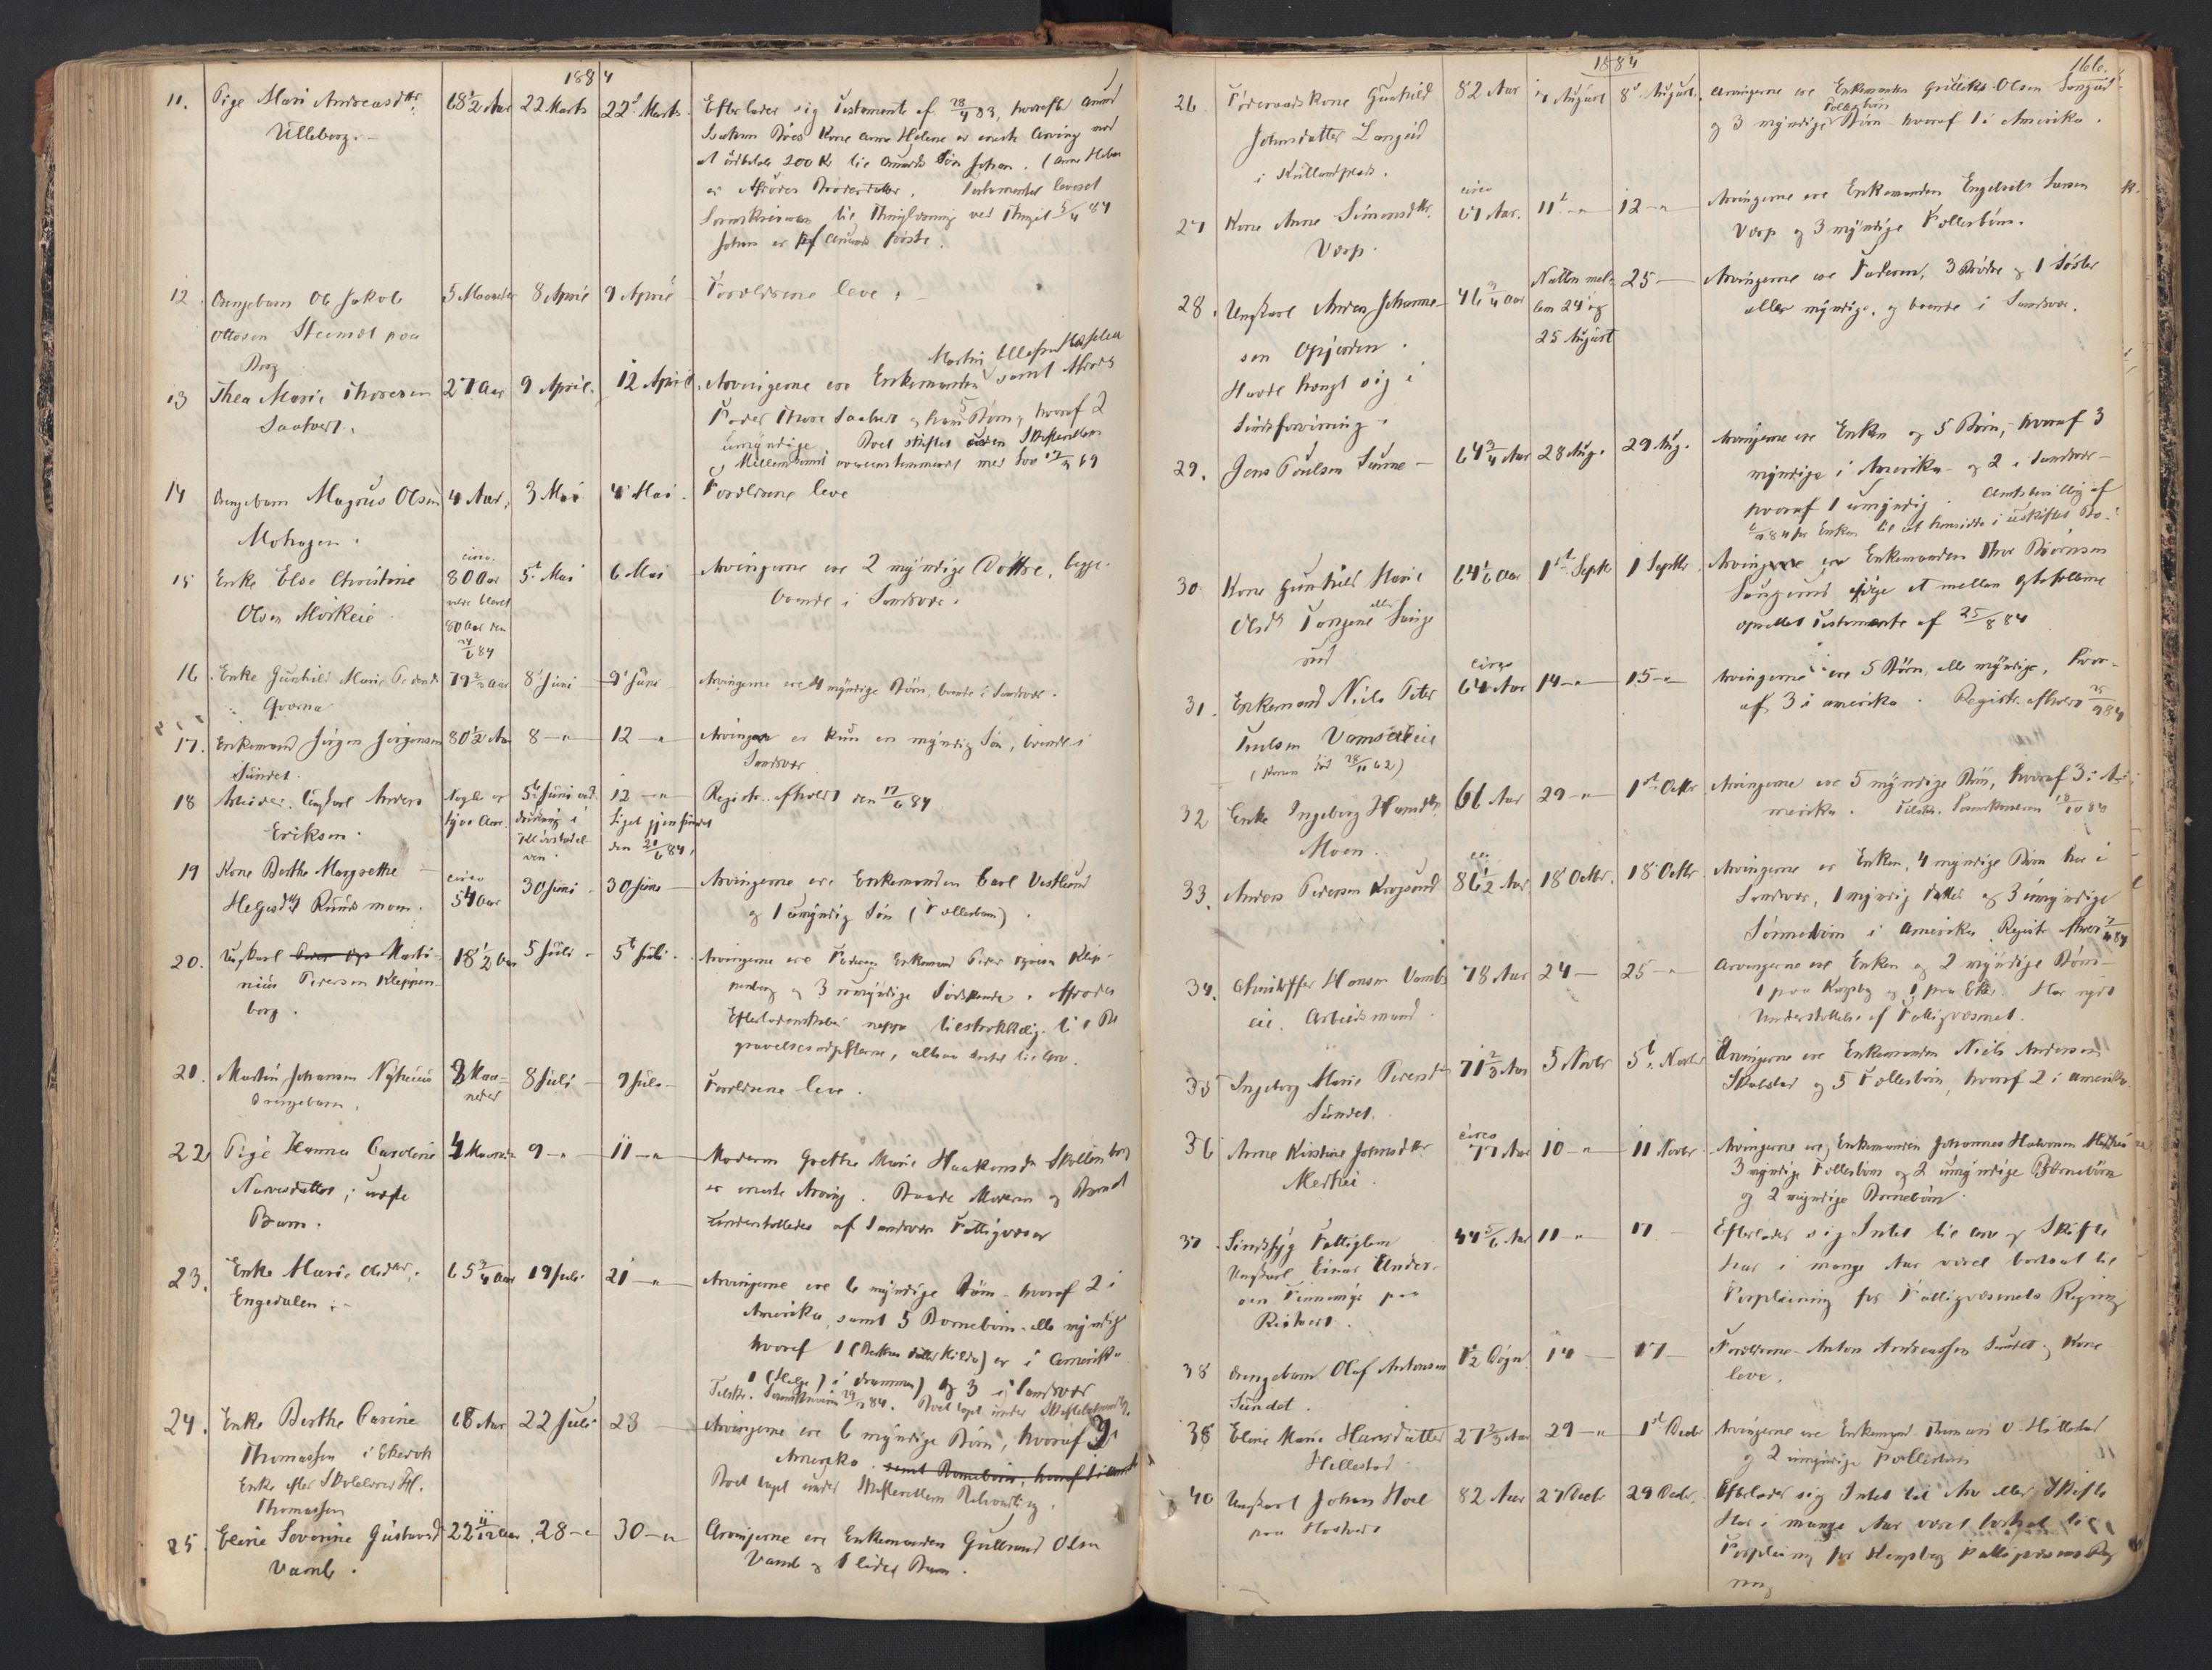 1884
11.
Pige Mari Andreasdttr.
Ulleberg.
68½ Aar
22 Marts
22d Marts
Efterlader sig Testament af 28/4 83, hvorefter Amund
Kone Anne Helene er eneste Arving mod
at udbetale 200 Kr til Amunds Søn Johan. (Anne Helene
er Afdødes Broderdatter. Testamentet leveret
Sorenskriveren til Thinglæsning ved Thinget 5/4 84
Johan er Amunds første.
12.
Drengebarn Ole Jakob
Ottosen Steimdt paa
Berg
5 Maaneder
8 April
9 April
Forældrene leve.
13
Thea Marie Thoresen
Saatvert.
27 Aar
9 April.
12 April.
Martin Ellefsen
Arvingerne ere Enkemanden samt Afdødes
Fader Thore Saatvert og hans 5 Børn, hvoraf 2
umyndige. Boet skiftet uden Skifterettens
Mellemkomst overensstemmende med Lov 12/4 69
14
Drengebarn Magnus Olsen
Mohagen.
4 Aar.
3 Mai
4 Mai.
Forældrene leve
15
Enke Else Christine
Olsen Mørkeie
circa
80 Aar
vilde blevet
80 Aar den
24/6 84
5t Mai
6 Mai
Arvingerne ere 2 myndige Døttre, begge
boende i Sandsvær.
16.
Enke Gunhild Marie Pedersdtr
Gværna
79⅔ Aar
8 Juni
9 Juni
Arvingerne ere 4 myndige Børn, boende i Sandsvær.
17.
Enkemand Jørgen Jørgensen
Sundet.
80½ Aar
8 —"—
12 —"—
Arvingen er kun en myndig Søn, boende i
Sandsvær
18
Arbeider, Ungkarl Anders
Eriksen.
Nogle og
tyve Aar.
5te Juni ved
drukning i
12 —"—
Liget gjenfundet
den 21/6 84.
Registr. afholdt den 17/6 84
19
Kone Berthe Margrethe
Helgesdtr Ruudsmoen.
circa
54 Aar
30 Juni
30 Juni
Arvingerne ere Enkemanden Carl Vestlund
og 1 umyndig Søn (Fællesbarn).
20.
Ungkarl Marti-
nius Pedersen Kleppen-
berg.
18½ Aar
5 Juli
5t Juli.
Arvingerne ere Faderen Enkemand Peder Klep-
penberg og 3 umyndige Sødskende. Afdødes
Efterladenskaber neppe tilstrækkelig til Be-
gravelsesudgifterne, altsaa Intet til Arv.
21.
Martin Johansen Nyheieie
Drengebarn.
3 Maa-
neder
8 Juli
9 Juli
Forældrene leve.
22
Pige Hanna Caroline
Narvesdatter; uægte
Barn.
4 Maaneder
9 —"—
11 —"—
Moderen Grethe Marie Haakensdtr Skollenborg
er eneste Arving. Baade Moderen og Barnet
understøttedes af Sandsvær Fattigvæsen
23.
Enke Marie Olsdttr.
Engedalen.
65¾ Aar
19 Juli
21 —"—
Arvingerne ere 6 myndige Børn - hvoraf 2 i
Amerika, samt 5 Børnebørn - alle myndige
hvoraf 1 er i Amerika
1 (Helge) i Drammen og 3 i Sandsvær
Tilskr. Sorenskriveren 29/7 84. Boet taget under Skiftebehandling.
24.
Enke Berthe Carine
Thomassen i Ekervik
Enke efter Skolelærer H.
Thomassen
68 Aar
22 Juli
23
Arvingerne ere 6 myndige Børn, hvoraf 3 i
Amerika. samt Børnebørn, hvoraf
Boet taget under Skifterettens Behandling.
25.
Elevine Severine Gustavsd
Vamb.
22 11/12 Aar
28 —"—
30 —"—
Arvingerne ere Enkemanden Gulbrand Olsen
Vamb og 1 lidet Barn.
1884
166.
26
Føderaadskone Gunhild
Johnsdatter Langeid
i
82 Aar
7 August
8de August.
Arvingerne ere Enkemanden Olsen Langeid
og 3 myndige Fællesbørn hvoraf 1 i Amerika.
27
Kone Anne Simensdttr.
Værp.
circa
61 Aar.
11t —"—
12 —"—
Arvingerne ere Enkemanden Engebret Larsen
Værp og 3 myndige Fællesbørn.
28.
Ungkarl Andreas Johanne-
sen Opjorden.
Havde hængt sig i
Sindsforvirring.
46¾ Aar
Natten mel-
lem 24 og
25 August
25 —
Arvingerne ere Faderen, 3 Brødre og 1 Søster
alle myndige, og boende i Sandsvær.
29.
Jens Poulsen
64¾ Aar
28 Aug.
29 Aug.
Arvingerne ere Enken og 5 Børn, hvoraf 3
myndige i Amerika og 2 i Sandsvær
hvoraf 1 umyndig. Amtsbevilling af
for Enken til at hensidde i uskiftet Bo.
30.
Kone Gunhild Marie
Olsdtr eller
64 1/6 Aar
1st Septb
1 Septbr
Arvingen er Enkemanden Thor Bjørnsen
ifølge et mellem Ægtefollerne
oprettet Testamente af 25/8 84
31.
Enkemand Niels Peter
Poulsen Vamseieie
(Konen død 28/11 62)
circa
64 Aar
14 —"—
15 —"—
Arvingerne ere 5 Børn, alle myndige, hvor-
af 3 i Amerika. Registr. afholdt 25/9 84
32
Enke Ingeborg Hansdttr.
Moen.
61 Aar
29 —"—
1st Octbr
Arvingerne ere 5 myndige Børn, hvoraf 3 i A-
merika. Tilskr. Sorenskriveren 18/10 84
33.
Anders Pedersen Kragsrud
86½ Aar
18 Octbr.
18 Octbr
Arvingerne er Enken, 4 myndige Børn her i
Sandsvær, 1 myndig Datter og 3 umyndige
Sønnebørn i Amerika. Registr. afholdt 84
34.
Christoffer Hansen Vambs
eie. Arbeidsmand.
78 Aar
24 —
25 —"—
Arvingerne ere Enken og 2 myndige Børn
1 paa Kongsbg og 1 paa Eker. Har nydt
Understøttelse af Fattigvæsenet.
35
Ingeborg Marie Pedersdtr
Sundet.
71⅔ Aar
5 Novbr
5t Novbr
Arvingerne ere Enkemanden Niels Andersen
Skabstad og 5 Fællesbørn, hvoraf 2 i Amerika.
36
Anne Kirstine Johnsdttr
Mørkei.
circa
77 Aar
10 —"—
11 Novbr.
Arvingerne ere, Enkemanden Johannes Halvorsen
3 myndige Fællesbørn og 2 umyndige Børnebørn
og 2 myndige Børnebørn.
37.
Sindssyg Fattiglem
Ungkarl Einar Ander-
sen paa
44 5/6 Aar
11 —"—
17
Efterlader sig Intet til Arv og Skifte
har i mange Aar været bortsat til
Forpleining for Fattigvæsenets Regning
38
Drengebarn Olaf Antonsen
Sundet.
½ Døgn
14 —
17 —
Forældrene Anton Andreassen Sundet og Kone
leve.
38
Eline Marie Hansdatter
Hellestad
27⅔ Aar
29 —"—
1st Decbr
Arvingerne ere Enkemand Thomas O. Hellestad
og 2 umyndige Fællesbørn
40
Ungkarl Johan Hoel
paa
82 Aar
27 Decbr
29 Decbr.
Efterlader sig Intet til Arv eller Skifte
Har i mange Aar været bortsat til
Forpleining for Kongsberg Fattigvæsens Reg
ning